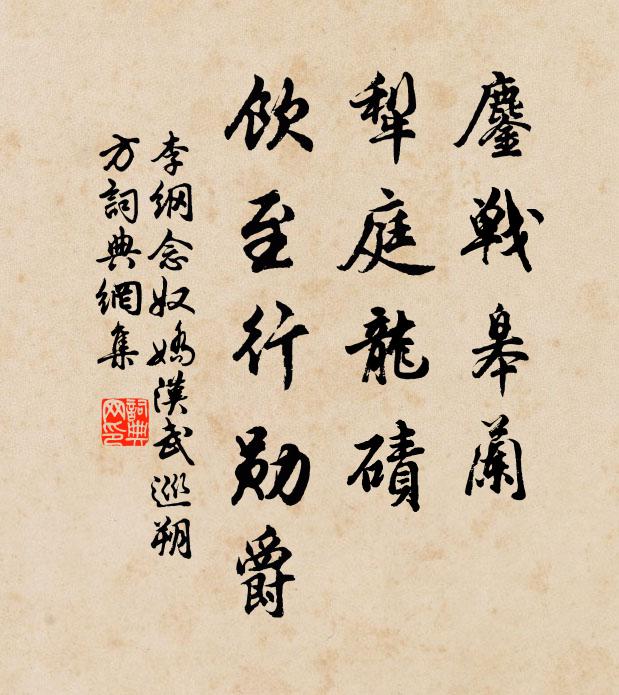 鏖战皋蘭
犁庭龍磧
飲至行勋爵
李綱念奴嬌漢武巡朔
方詞典網集
詞典
网印